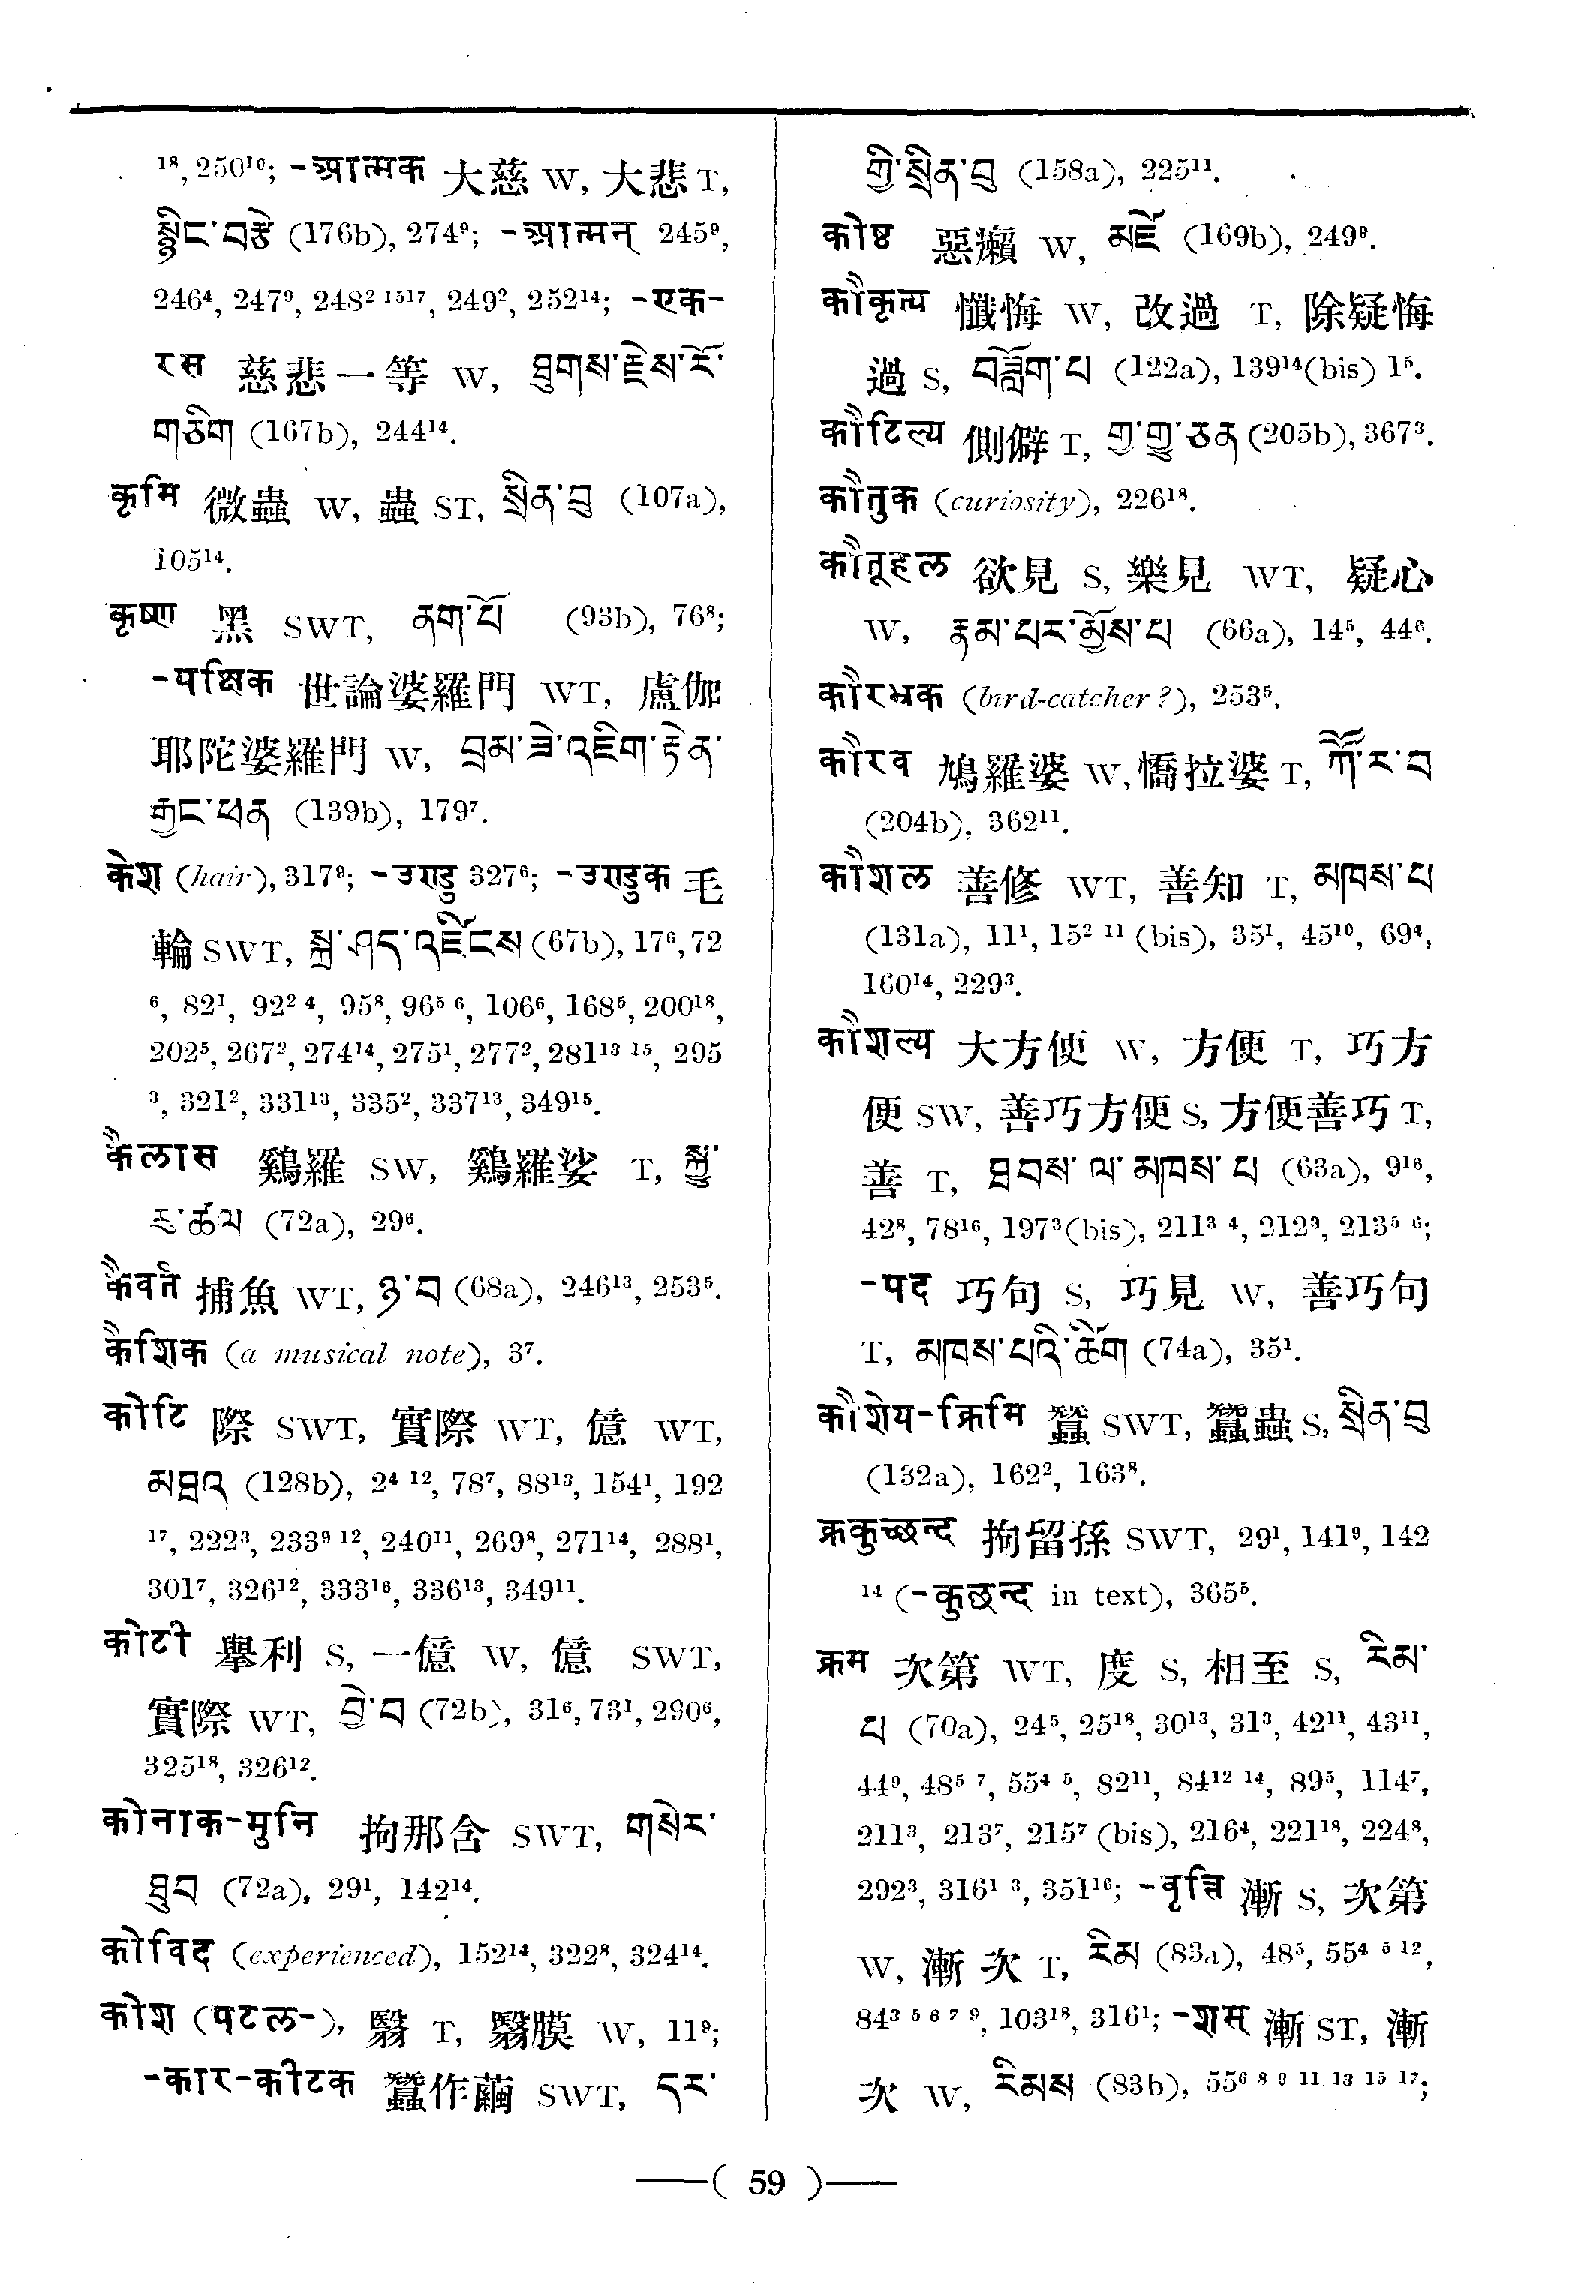 ¹⁸, 250¹⁰; -आत्मक 大慈 W, 大悲 T,
སྙིང་བརྩེ (176b), 274⁹; -आत्मन् 245⁹,
246⁴, 247⁹, 248² ¹⁵¹⁷, 249², 252¹⁴; -एक-
रस 慈悲一等 W, ཐུགས་རྗེས་རོ་
གཅིག (167b), 244¹⁴.
कृमि 微蟲 W, 蟲 ST, སྲིན་བུ (107a),
105¹⁴.
कृष्ण 黑 SWT, ནག་པོ (93b), 76⁸;
-पक्षिक 世論婆羅門 WT, 盧伽
耶陀婆羅門 W, བྲམ་ཟེ་འཇིག་རྟེན་
རྒྱང་ཕན (139b), 179⁷.
केश (hair), 317⁹; -उण्डु 327⁶; -उण्डुक 毛
輪 SWT, སྐྲ་ཤད་འཛིངས (67b), 17⁶, 72
⁶, 82¹, 92² ⁴, 95⁸, 96⁵ ⁶, 106⁶, 168⁵, 200¹⁸,
202⁵, 267², 274¹⁴, 275¹, 277², 281¹³ ¹⁵, 295
³, 321², 331¹³, 335², 337¹³, 349¹⁵.
कैलास 鷄羅 SW, 鷄羅娑 T, སྐྱ་
རུ་ཚལ (72a), 29⁶.
कैवर्त 捕魚 WT, ཉ་བ (68a), 246¹³, 253⁵.
कैशिक (a musical note), 3⁷.
कोटि 際 SWT, 實際 WT, 億 WT,
མཐའ (128b), 2⁴ ¹², 78⁷, 88¹³, 154¹, 192
¹⁷, 222³, 233⁹ ¹², 240¹¹, 269⁸, 271¹⁴, 288¹,
301⁷, 326¹², 333¹⁶, 336¹³, 349¹¹.
कोटी 擧利 S, 一億 W, 億 SWT,
實際 WT, བྱེ་བ (72b), 31⁶, 73¹, 290⁶,
325¹⁸, 326¹².
कोनाक-मुनि 拘那含 SWT, གསེར་
ཐུབ (72a), 29¹, 142¹⁴.
कोविद (experienced), 152¹⁴, 322⁸, 324¹⁴.
कोश (पटल-), 翳 T, 翳膜 W, 11⁹;
-कार-कीटक 蠶作繭 SWT, དར་
གྱི་སྲིན་བུ (158a), 225¹¹.
कोष्ठ 惡癩 W, མཛེ (169b), 249⁸.
कौकृत्य 懺悔 W, 改過 T, 除疑悔
過 S, བཟློག་པ (122a), 139¹⁴(bis) 1⁵.
कौटिल्य 側僻 T, གྱ་གྱུ་ཅན (205b), 367³.
कौतुक (curiosity), 226¹⁸.
कौतूहल 欲見 S, 樂見 WT, 疑心
W, རྣམ་པར་མྱོས་པ (66a), 14⁵, 44⁶.
कौरभ्रक (bird-catcher?), 253⁵.
कौरव 鳩羅婆 W, 憍拉婆 T, ཀཽ་ར་བ
(204b), 362¹¹.
कौशल 善修 WT, 善知 T, མཁས་པ
(131a), 11¹, 15² ¹¹ (bis), 35¹, 45¹⁰, 69⁴,
160¹⁴, 229³.
कौशल्य 大方便 W, 方便 T, 巧方
便 SW, 善巧方便 S, 方便善巧 T,
善 T, ཐབས་ལ་མཁས་པ (63a), 9¹⁶,
42⁸, 78¹⁶, 197³(bis), 211³ ⁴, 212⁹, 213⁵ ⁶;
-पद 巧句 S, 巧見 W, 善巧句
T, མཁས་པའི་ཚིག (74a), 35¹.
कौशेय-क्रिमि 蠶 SWT, 蠶蟲 S, སྲིན་བུ
(132a), 162², 163⁸.
क्रकुच्छन्द 拘留孫 SWT, 29¹, 141⁹, 142
¹⁴ (-कुछन्द in text), 365⁵.
क्रम 次第 WT, 度 S, 相至 S, རིམ་
པ (70a), 24⁵, 25¹⁸, 30¹³, 31³, 42¹¹, 43¹¹,
44⁹, 48⁵ ⁷, 55⁴ ⁵, 82¹¹, 84¹² ¹⁴, 89⁵, 114⁷,
211³, 213⁷, 215⁷ (bis), 216⁴, 221¹⁸, 224⁸,
292³, 316¹ ³, 351¹⁶; -वृत्ति 漸 S, 次第
W, 漸次 T, རིམ (83a), 48⁵, 55⁴ ⁵ ¹²,
84³ ⁵ ⁶ ⁷ ⁹, 103¹⁸, 316¹; -शस् 漸 ST, 漸
次 W, རིམས (83b), 55⁶ ⁸ ⁹ ¹¹ ¹³ ¹⁵ ¹⁷;
—( 59 )—